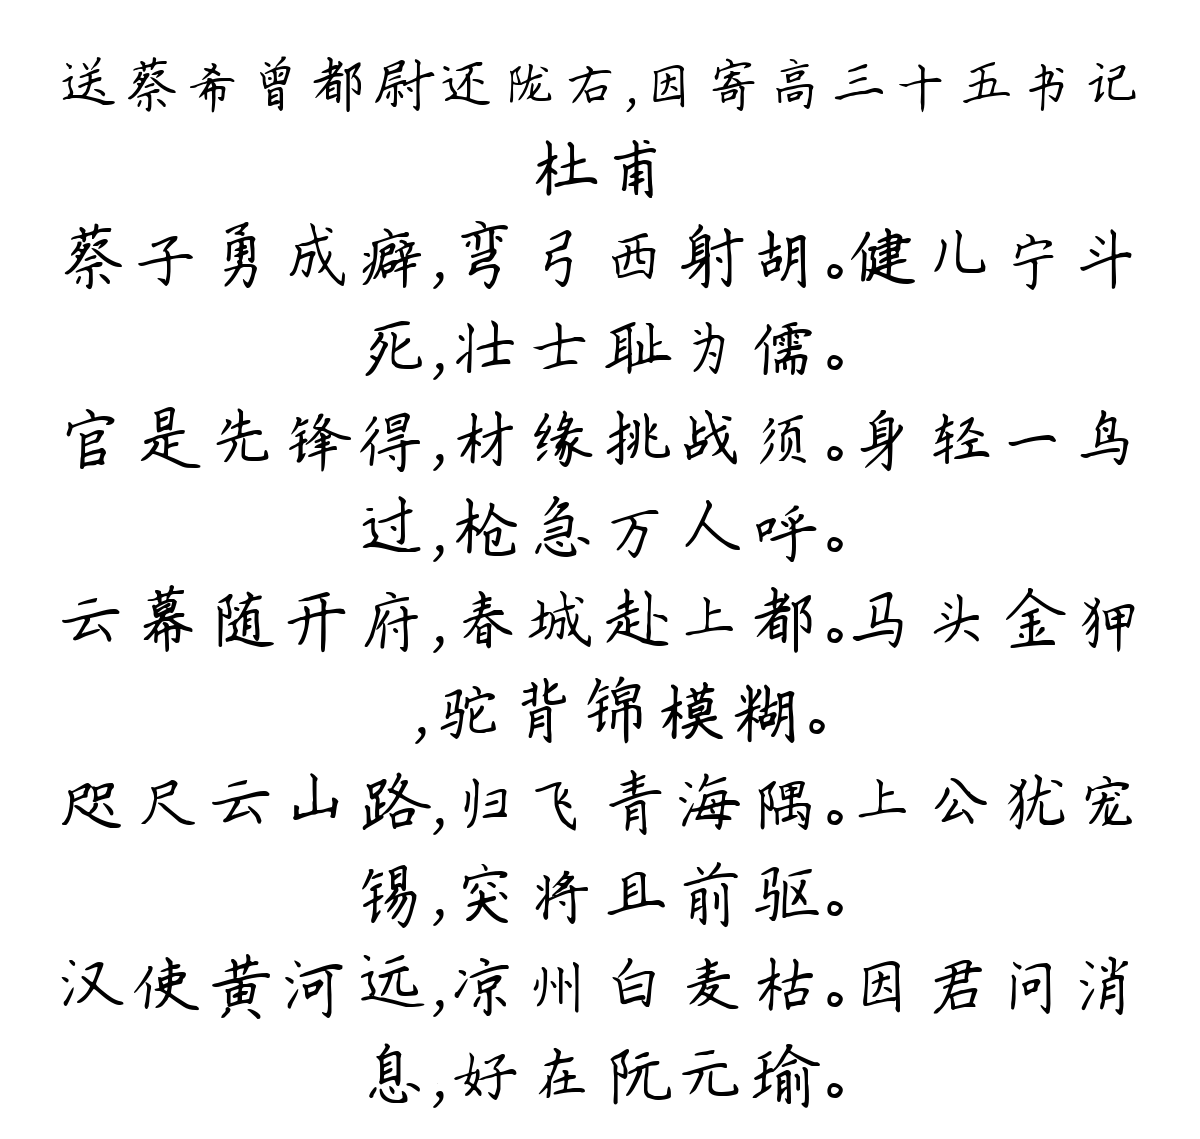 送蔡希曾都尉还陇右,因寄高三十五书记
杜甫
蔡子勇成癖,弯弓西射胡。健儿宁斗
死,壮士耻为儒。
官是先锋得,材缘挑战须。身轻一鸟
过,枪急万人呼。
云幕随开府,春城赴上都。马头金狎
,驼背锦模糊。
咫尺云山路,归飞青海隅。上公犹宠
锡,突将且前驱。
汉使黄河远,凉州白麦枯。因君问消
息,好在阮元瑜。